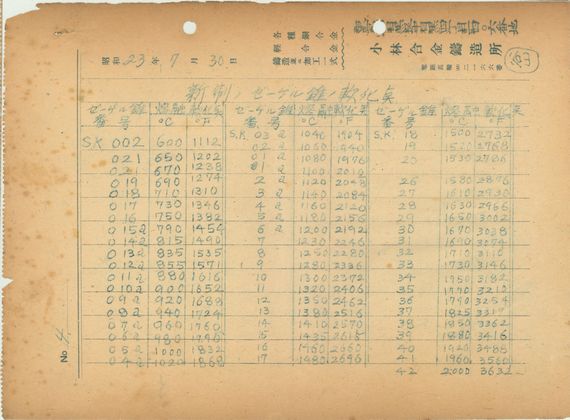 各種銅合金
軽合金
鋳造並加工一式
小林合金鋳造所
昭和 23 年 7 月 30 日
新制ノゼーゲル錐ノ軟化点
ゼーゲル錐 熔融軟化点 ゼーゲル錐 熔融軟化点 ゼーゲル錐 熔融軟化点
番号 °C °F 番号 °C °F 番号 °C °F
SK 002 600 1112 S.K. 03a 1040 1904 S.K. 18 1500 2732
02a 1060 1940 19 1520 2768
021 650 1202 01a 1080 1976 20 1530 2786
02 670 1238 1a 1100 2012
019 690 1274 2a 1120 2048 26 1580 2876
018 710 1310 3a 1140 2084 27 1610 2930
017 730 1346 4a 1160 2120 28 1630 2966
016 750 1382 5a 1180 2156 29 1650 3002
015a 790 1454 6a 1200 2192 30 1670 3038
014a 815 1499 7 1230 2246 31 1690 3074
013a 835 1535 8 1250 2280 32 1710 3110
012a 855 1571 9 1280 2336 33 1730 3146
011a 880 1616 10 1300 2372 34 1750 3182
010a 900 1652 11 1320 2406 35 1770 3210
09a 920 1688 12 1350 2462 36 1790 3254
08a 940 1724 13 1380 2516 37 1825 3317
07a 960 1760 14 1410 2570 38 1850 3362
06a 980 1796 15 1435 2615 39 1880 3416
05a 1000 1832 16 1460 2660 40 1920 3488
04a 1020 1868 17 1480 2696 41 1960 3560
42 2000 3632
No 4.